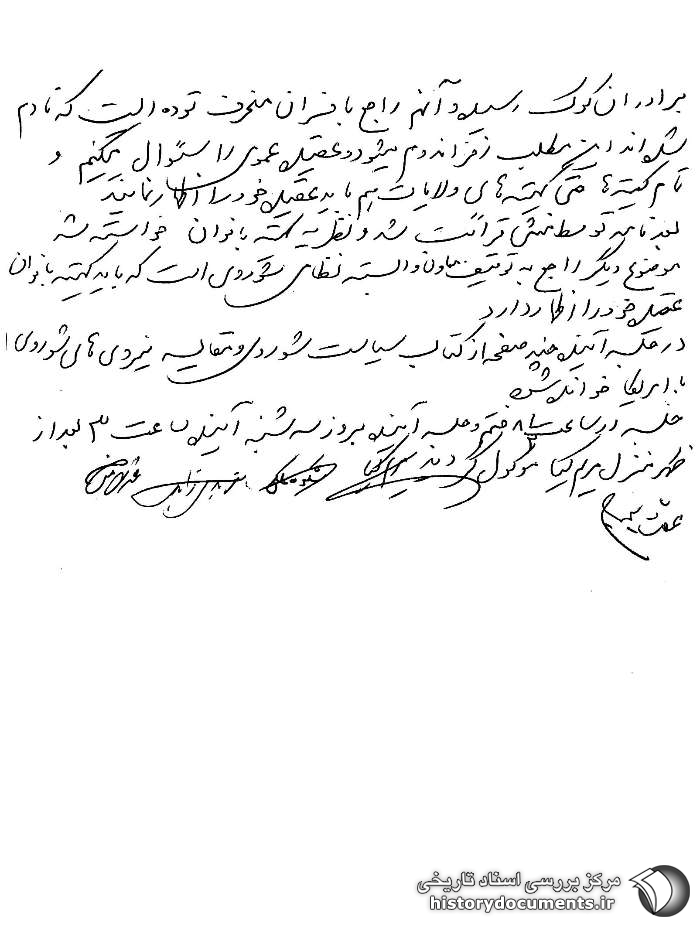 برادران کوک رسیده و آنهم راجع بافسران منحرف توده است که نادم
شده اند این مطلب رفراندوم میشود و عقیده عموی را سئوال میکنیم و
تام کمیته ها حتی کمیته های ولایات هم باید عقیده خود را اظهار نمایند
بعد نامه توسط منشی قرائت شد و نظریه کمیته بانوان خواسته شد
موضوع دیگر راجع به توقیف معاون وابسته نظامی شوروی است که باید کمیته بانوان
عقیده خود را اظهار دارد
در جلسه آینده چند صفحه از کتاب سیاست شوروی و مقایسه نیروی های شوروی
با امریکا خوانده شود
جلسه در ساعت ۸ ختم و جلسه آینده بروز سه شنبه آینده ساعت ۳ بعد از
ظهر منزل مریم کیا موکول گردید
مرکز بررسی اسناد تاریخی
historydocuments.ir